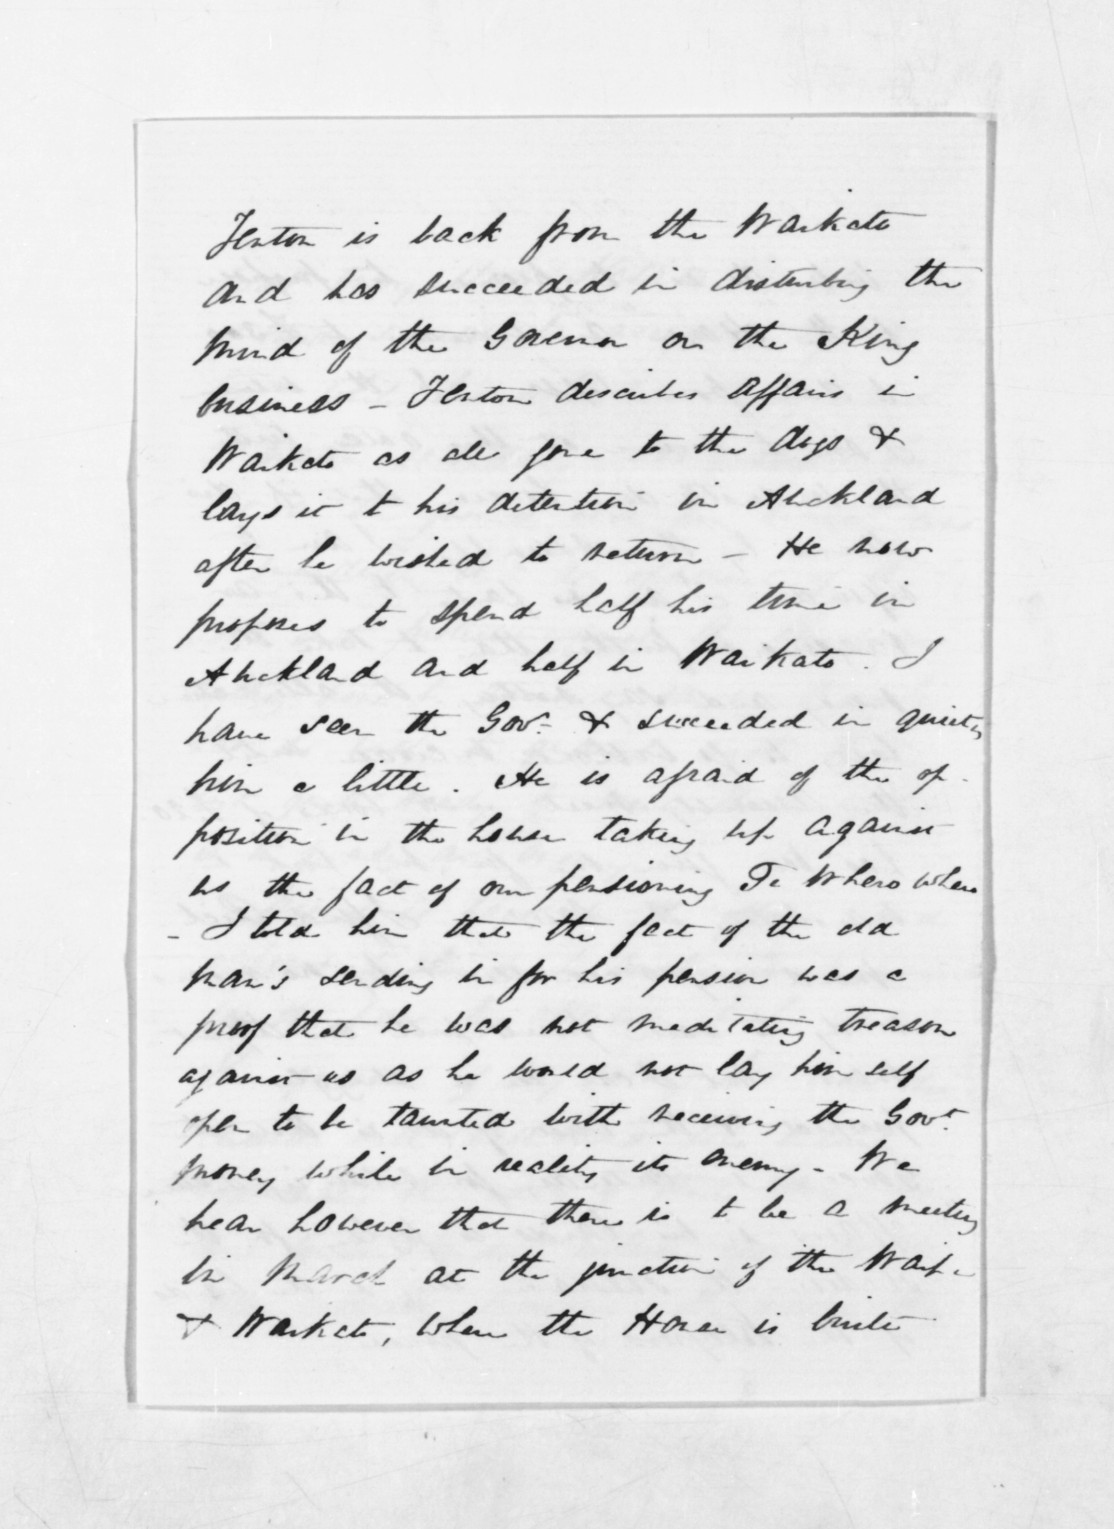 Fenton is back from the Waikato
and has succeeded in disturbing the
mind of the Governor on the King
business - Fenton describes affairs in
Waikato as all gone to the dogs &
lays it to his detention in Auckland
after he wished to return - He now
proposes to spend half his time in
Auckland and half in Waikato. I
have seen the Govr. & succeeded in quieting
him a little. He is afraid of the op-
position in the house taking up against
us the fact of our pensioning Te Whero whero
- I told him that the fact of the old
man's sending in for his pension was a
proof that he was not meditating treason
against us as he would not lay him self
open to be taunted with receiving the Govt.
money while in reality its enemy - We
hear however that there is to be a meeting
in March at the junction of the Waipa
& Waikato, where the House is built